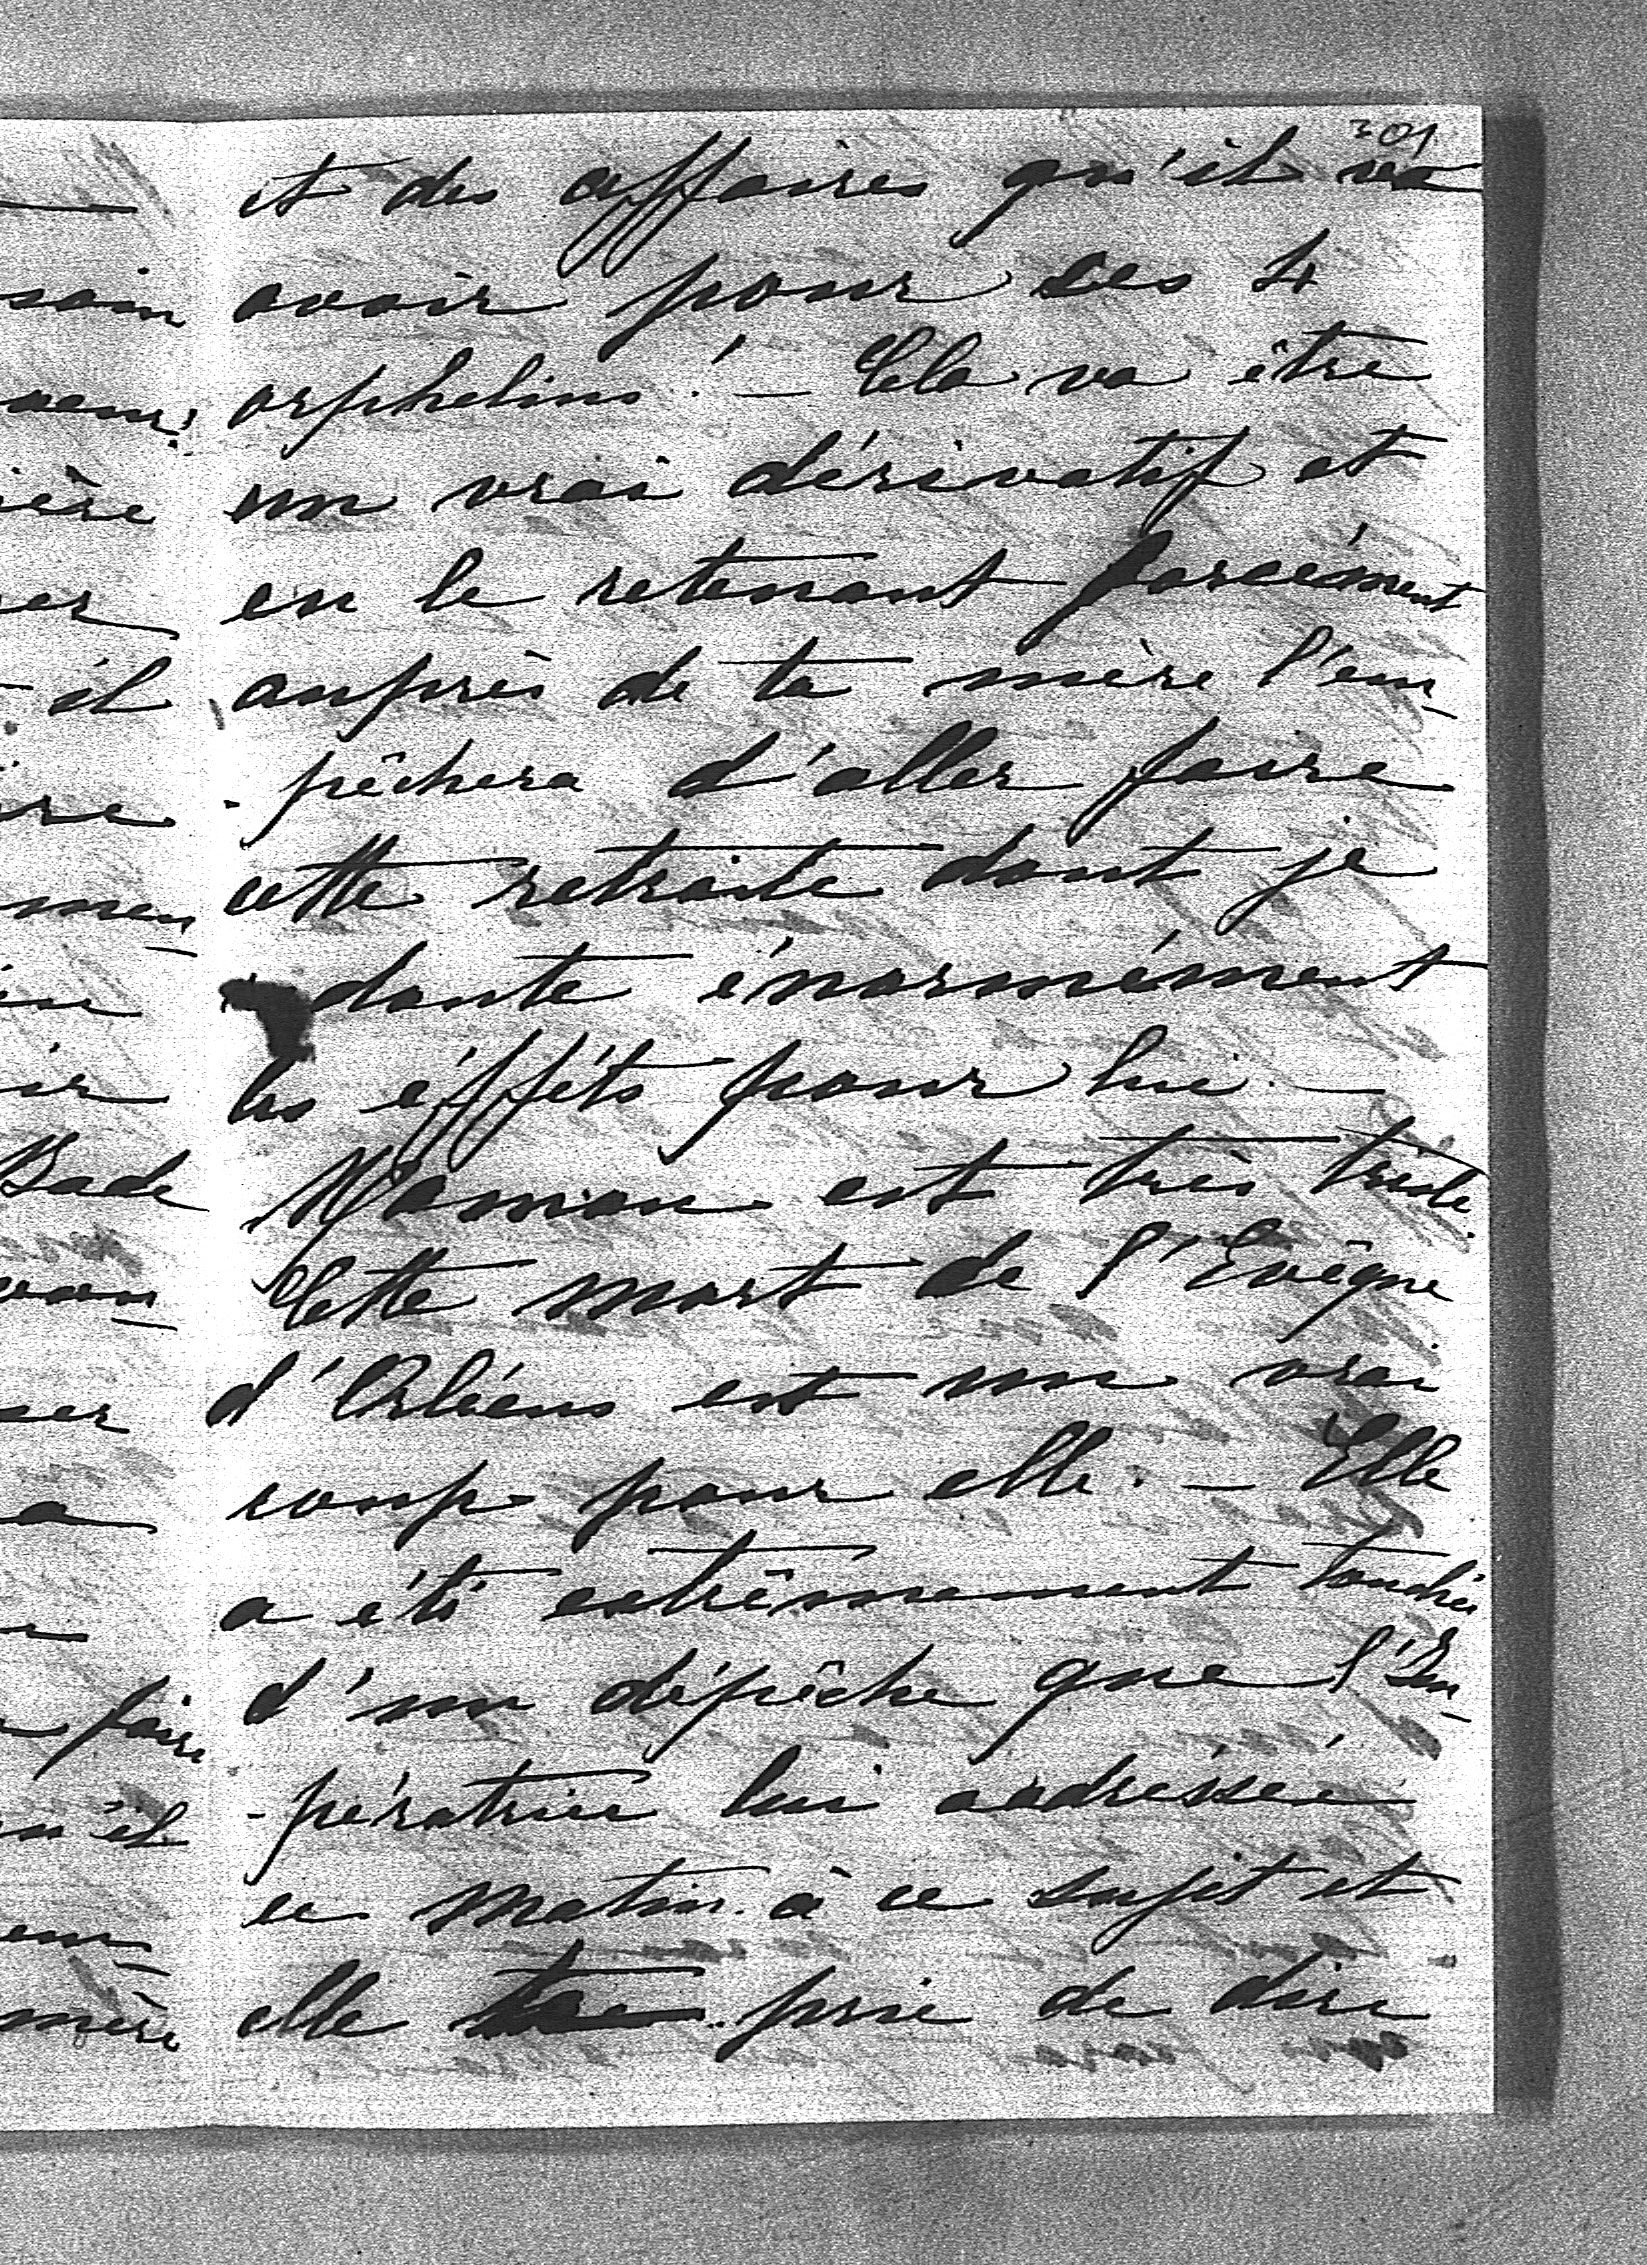 301
et des affaires qu'il va
avoir pour ces 4
orphelins! — Cela va être
un vrai dérivatif et
en le retenant forcément
auprès de ta mère l'em-
-pêchera d'aller faire
cette retraite dont je
doute énormément
les éfféts pour lui. —
Maman est très triste.
Cette mort de l'Evêque
d'Orléans est un vrai
coup pour elle. — Elle
a été extrêmement touchée
d'un dépêche que l'Im-
-pératrice lui a adréssée
ce matin à ce sujet et
elle prie de dire
soin
ière
il
Bade
faire
mère